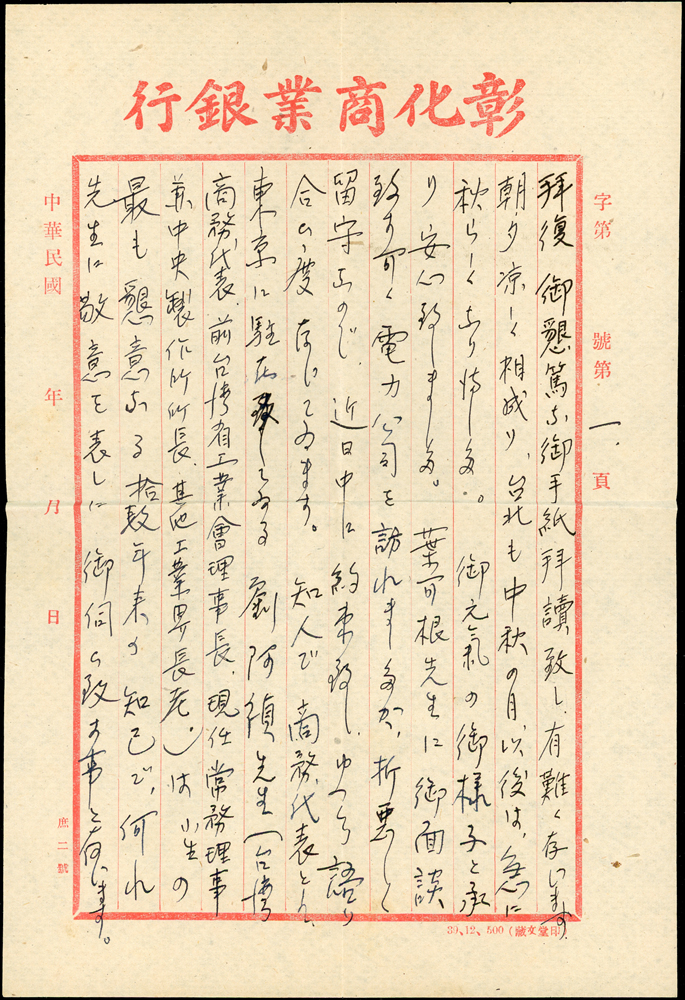 彰化商業銀行
字第 號第 一. 頁
拜復 御懇篤な御手紙拜讀致し、有難く存じます。
朝夕凉しく相成り、台北も中秋の月以後は、急に
秋らしくなり待した。 御元氣の御様子と承
り安心致しました。 葉可根先生に御面談
致す可く電力公司を訪れましたが、折悪しく
留守なので、近日中に約束致し、ゆつくり語り
合ふ度存じてゐます。 知人で商務代表として
東京に駐在してゐる 劉阿禎先生(台湾
商務代表、前台湾省工業會理事長、現任常務理事
兼中央製作所所長、其他工業界長老。)は小生の
最も懇意なる拾数年来の知己で、何れ
先生に敬意を表しに御伺ひ致す事と存じます。
中華民國 年 月 日
庶二號
39、12、500(藏文堂印)